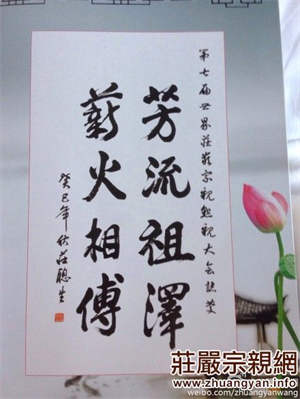 第七届世界莊嚴宗親懇親大会誌慶
芳流祖澤
薪火相傳
癸巳年秋莊聰生
莊嚴宗親網
www.zhuangyan.net
weibo.com/zhuangyanwang